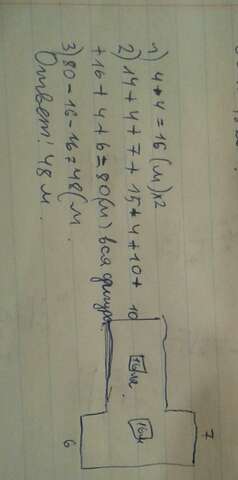 1) 4*4=16 (м)х2
2) 14+4+7+15*4+10+
+16+4+6=80(м) вся фигура.
3) 80-16-16=48(м.
Ответ: 48 м.
10
16м.
16м
7
6